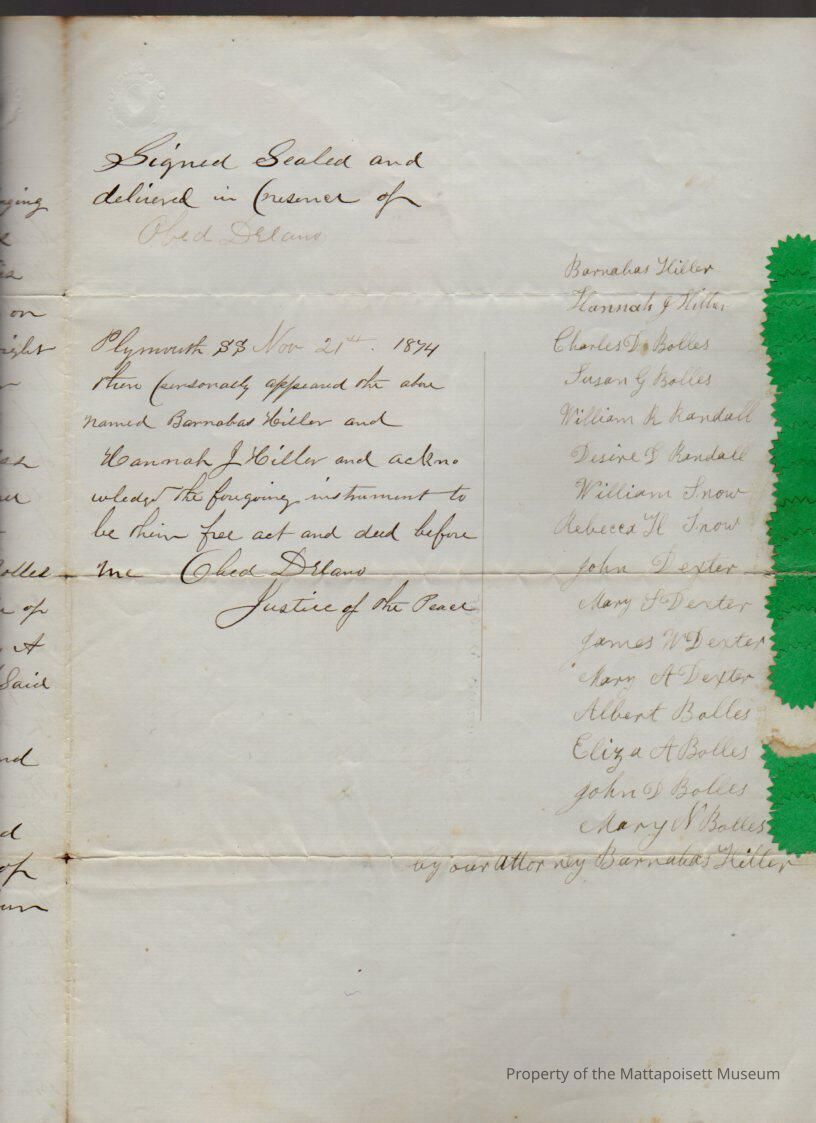 Signed Sealed and
delivered in Presence of
Obed Delano
Plymouth SS Nov 21st. 1874
then personally appeared the above
named Barnabas Hiller and
Hannah J Hiller and ackno
wledgd the forgoing instrument to
be their free act and deed before
me Obed Delano
Justice of the Peace
Barnabas Hiller
Hannah J Hiller
Charles D. Bolles
Susan G Bolles
William R Randall
Desire Randall
William Snow
Rebecca H Snow
John Dexter
Mary S Dexter
James W Dexter
Mary A Dexter
Albert Bolles
Eliza A Bolles
John D Bolles
Mary N Bolles
by our Attorney Barnabas Hiller
on
olles
of
A
Said
nd
d
of
Property of the Mattapoisett Museum